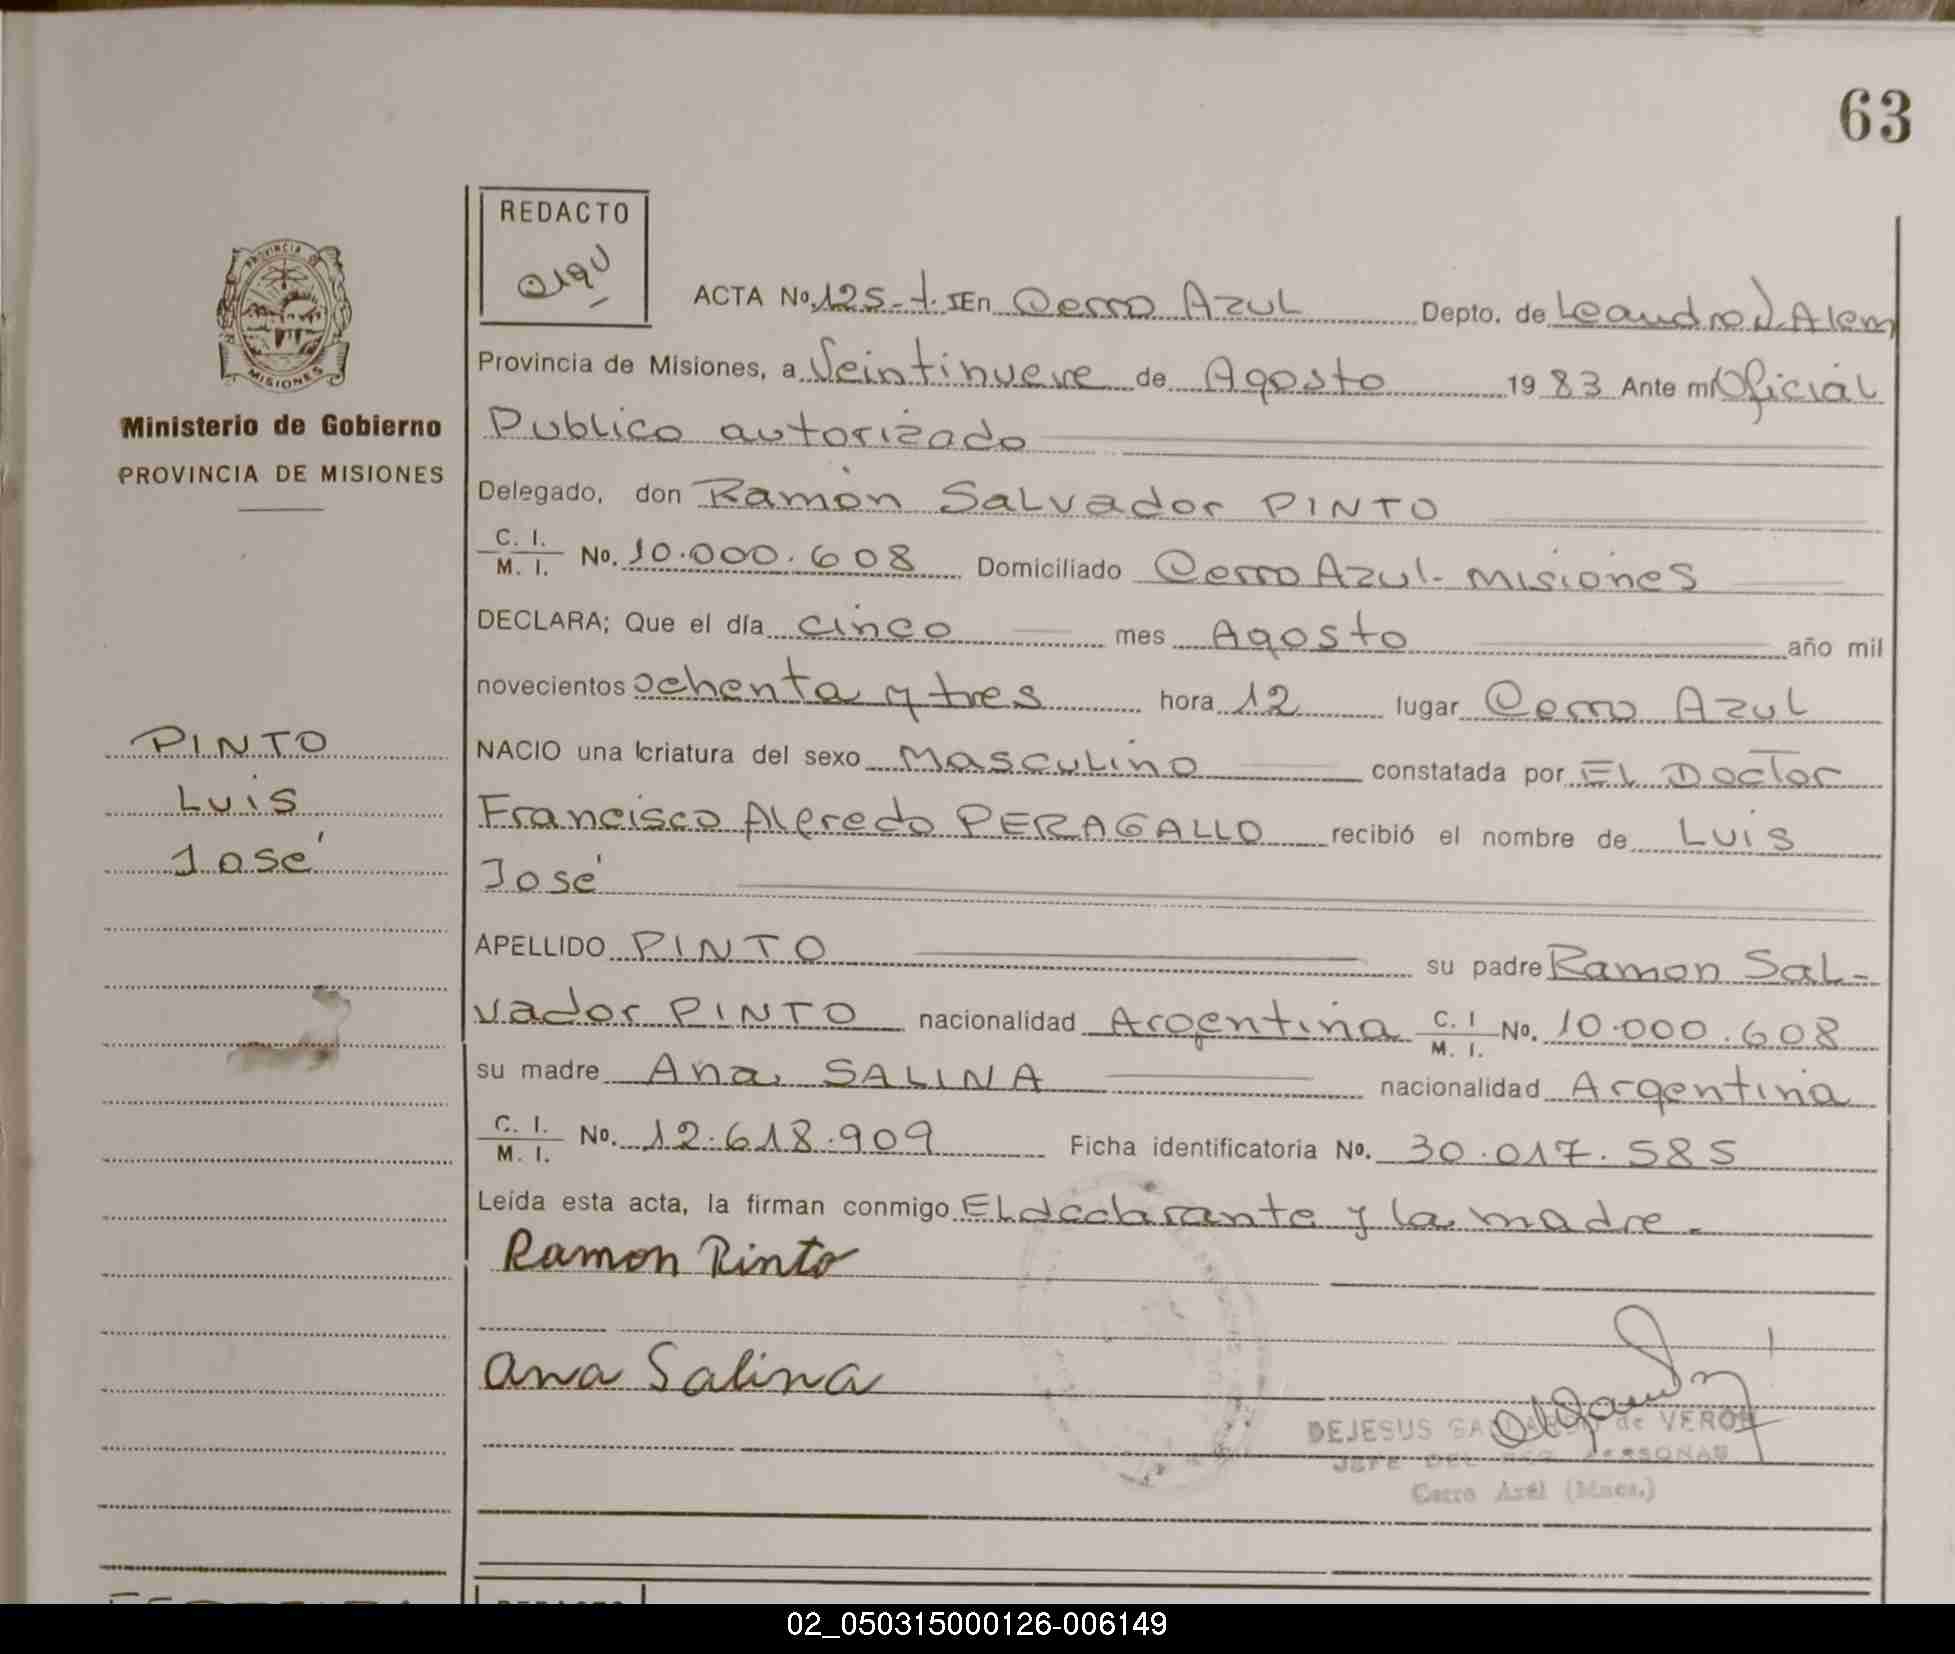 63
REDACTO
ACTA No. 125-t.I En Cerro Azul Depto. de Leandro N. Alem
Provincia de Misiones, a Veintinueve de Agosto 1983 Ante mí Oficial
Publico autorizado
Delegado, don Ramón Salvador PINTO
C. I.
M. I. No. 10.000.608 Domiciliado Cerro Azul- Misiones
DECLARA; Que el día cinco mes Agosto año mil
novecientos ochenta y tres hora 12 lugar Cerro Azul
NACIO una criatura del sexo Masculino constatada por EL Doctor
Francisco Alfredo PERAGALLO recibió el nombre de Luis
José
APELLIDO PINTO su padre Ramon Sal-
vador PINTO nacionalidad Argentina C. I
M. I. No. 10.000.608
su madre Ana SALINA nacionalidad Argentina
C. I.
M. I. No. 12.618.909 Ficha identificatoria No. 30.017.585
Leída esta acta, la firman conmigo EL declarante y la madre.
Ramon Pinto
Ana Salina
DEJESUS de VERON
JEFE DEL REG PERSONAS
Cerro Azul (Mnes.)
PROVINCIA DE
MISIONES
Ministerio de Gobierno
PROVINCIA DE MISIONES
PINTO
Luis
José
02_050315000126-006149